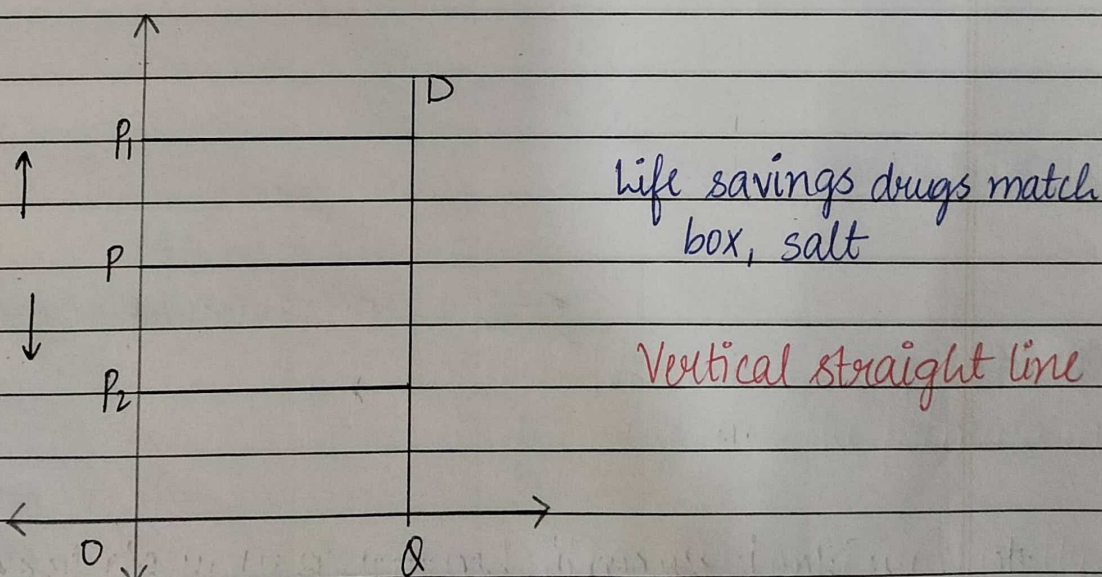 D
P₁
Life savings drugs match
box, salt
P
Vertical straight line
P₂
O
Q